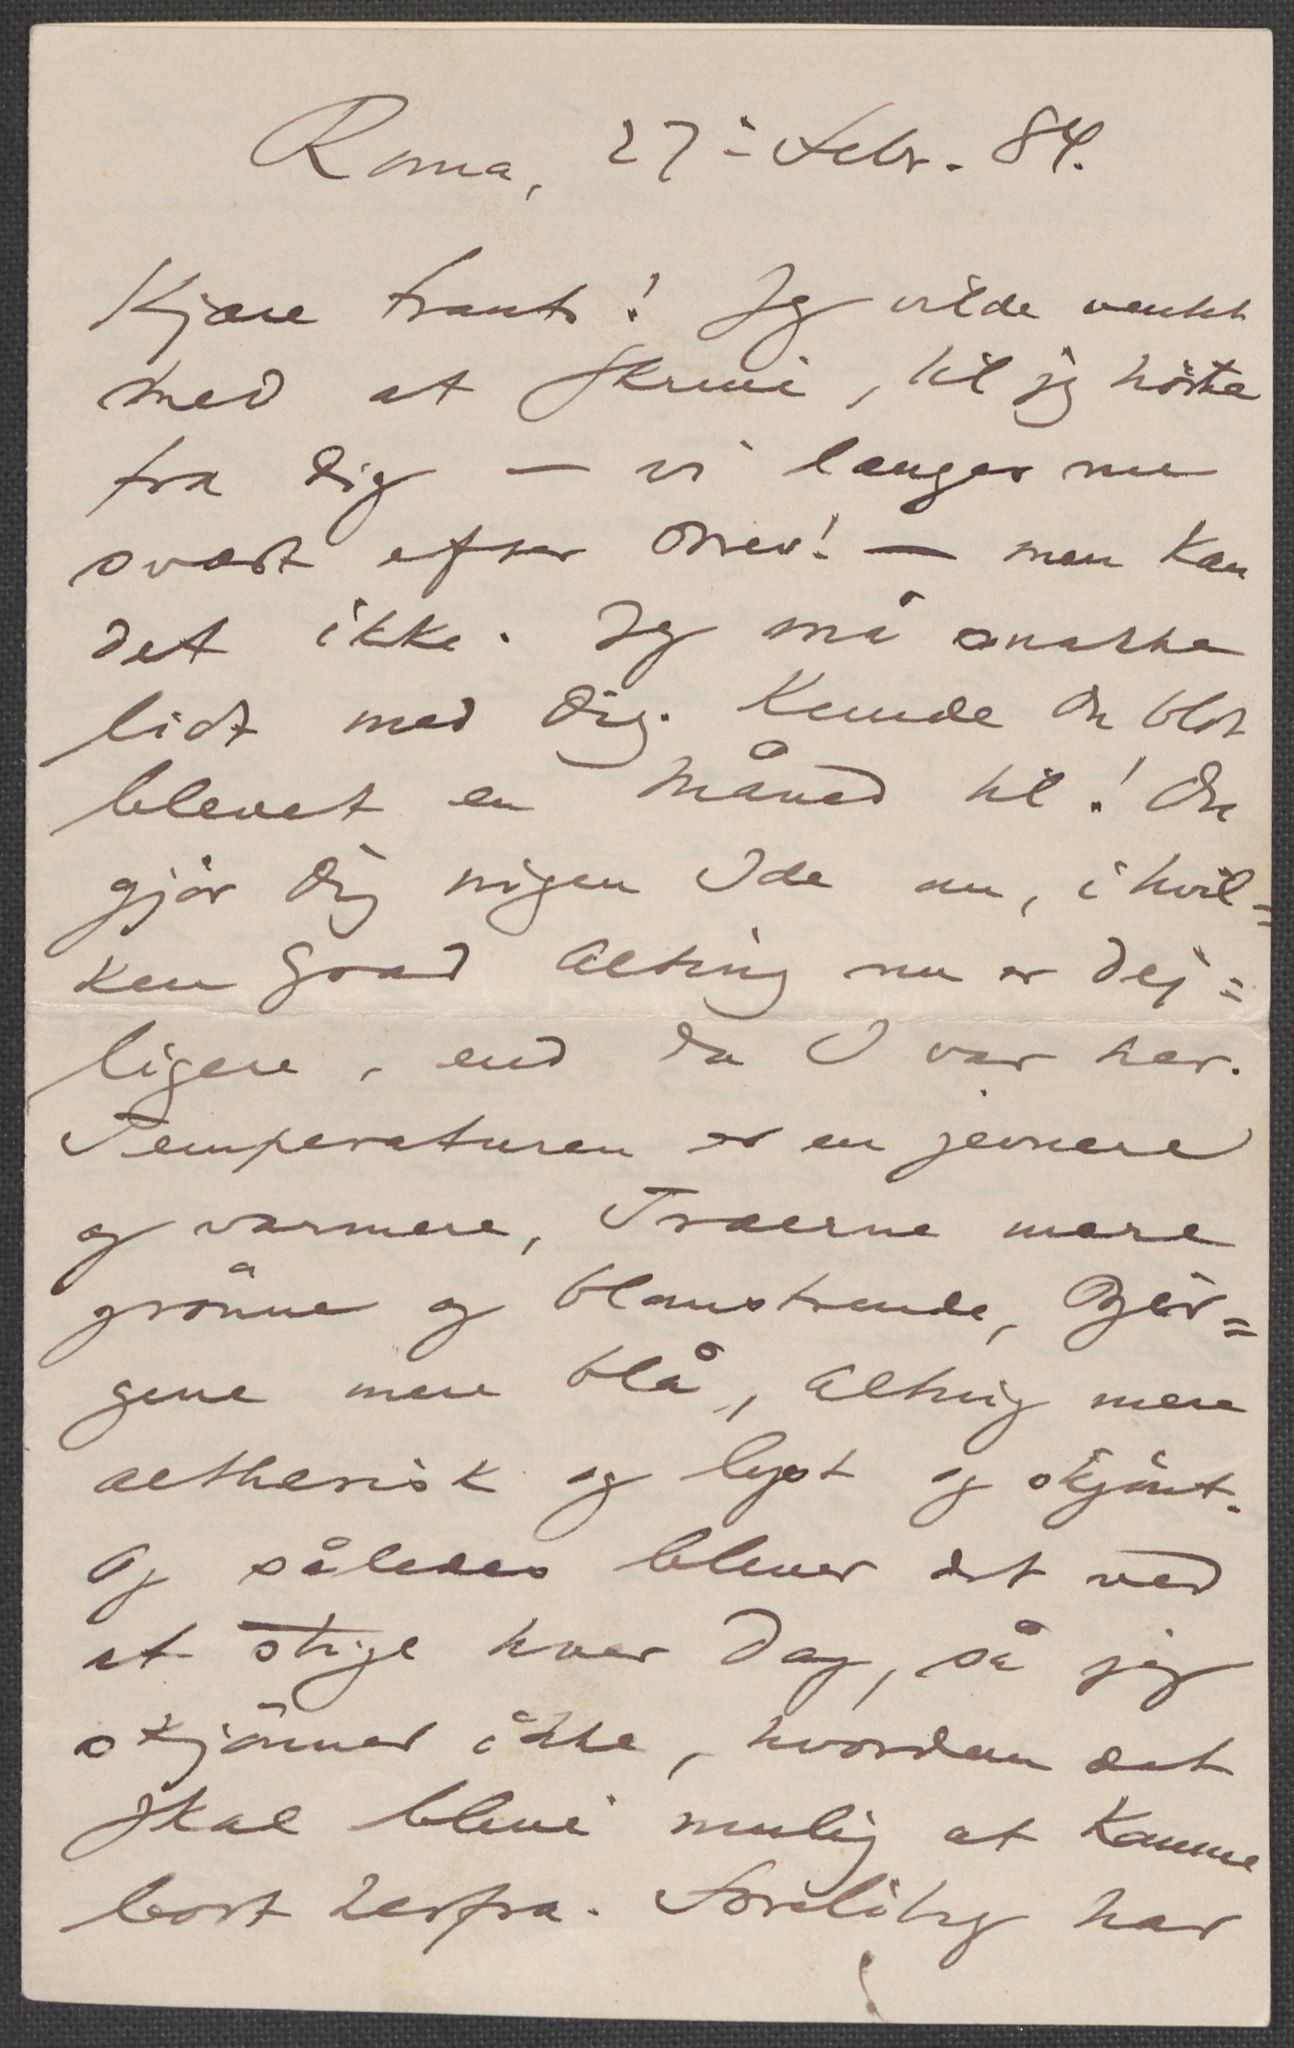 Roma, 27 Febr. 84.
Kjære Frants! Jeg vilde ventet
med at skrive, til jeg hörte
fra Dig — vi længes nu
svært efter Brev! — men kan
det ikke. Jeg må snakke
lidt med Dig. Kunde Du blot
blevet en Måned til! Du
gjör Dig ingen Ide om, i hvil=
ken Grad Alting nu er dej=
ligere, end da I var her.
Temperaturen er en jevnere
og varmere, Træerne mere
grönne og blomstrende, Bjer=
gene mere blå, Alting mere
aetherisk og lyst og skjönt.
Og således bliver det ved
at stige hver Dag, så jeg
skjönner ikke, hvordan det
skal blive mulig at komme
bort herfra. Foreløbig har